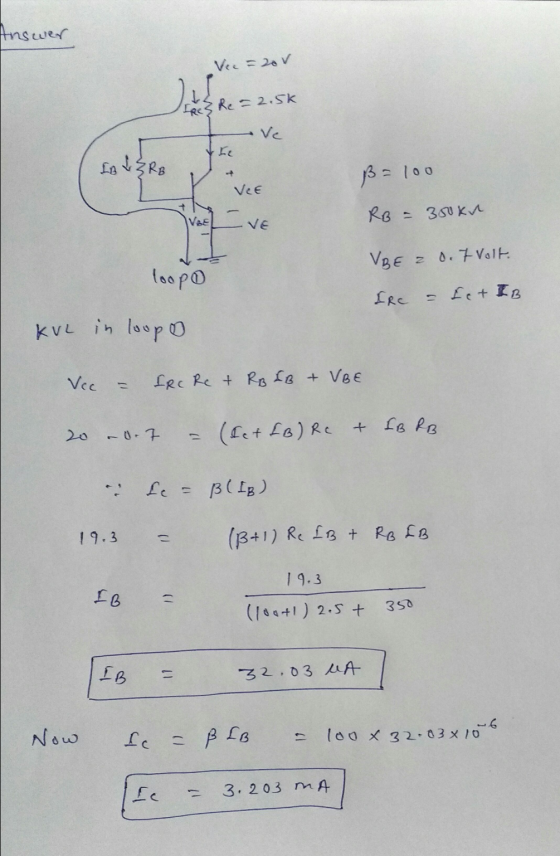 Answer
Vcc = 20V
IRC Rc = 2.5K
Vc
Ic
IB RB
+
VCE
-
+
VBE
-
VE
loop ①
β = 100
RB = 350KΩ
VBE = 0.7 Volt.
IRC = Ic + IB
KVL in loop ①
Vcc = IRC Rc + RB IB + VBE
20 - 0.7 = (Ic + IB) Rc + IB RB
∵ Ic = β(IB)
19.3 = (β+1) Rc IB + RB IB
IB = 19.3 / (100+1) 2.5 + 350
IB = 32.03 µA
Now Ic = β IB = 100 x 32.03 x 10⁻⁶
Ic = 3.203 mA